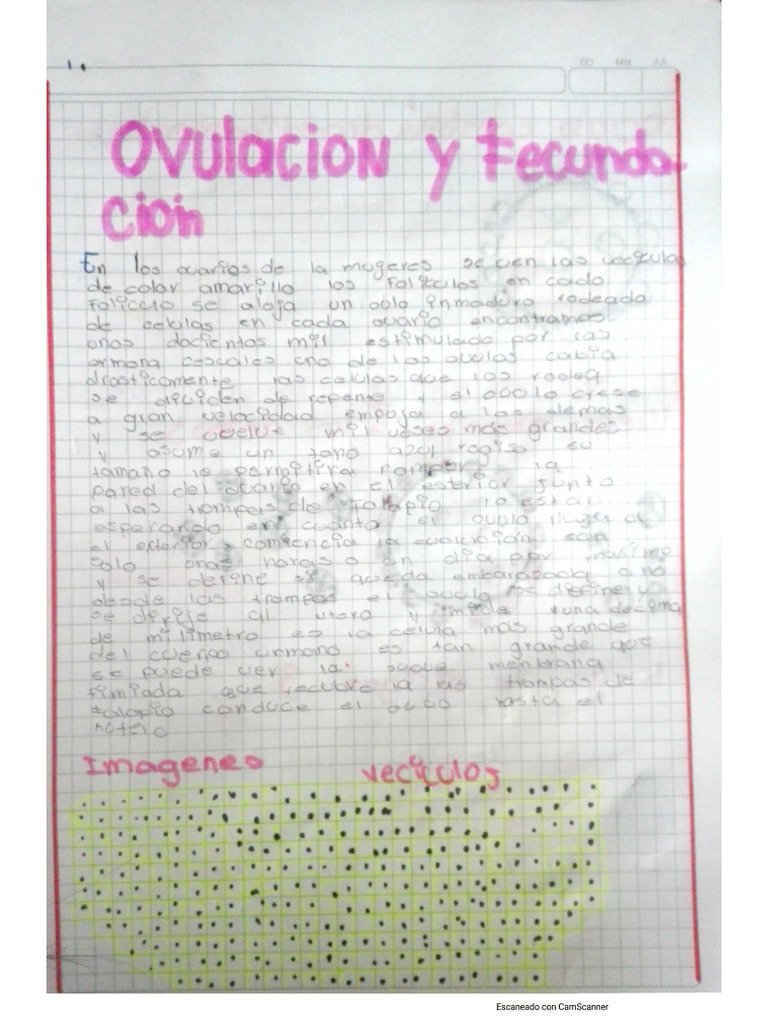 DD MM AA
OVULACION y Fecunda
cion
En los ovarios de la mugeres se ven las vecicula
de color amarillo los Foliculos en cado
Foliculo se aloja un oolo inmaduro rodeada
de celulas en cada ovario encontramos
onos docientos mil estimulado por las
ormona cescuales uno de las ovulos cabia
drasticamente las celulas que los rodea
se dividen de repente y el ovulo crese
a gran velocidad empuja a los demas
y se vuelve mil veses mas grandes
y asume un tono azul su
tamaño le permitira romper la
pared del ovario en el exterior junto
a las trompas de Falopio lo estan
esperando en cuanto el ovulo lluga a
el exterior comiencia la son
solo onas horas o un dia por masimo
y se define si queda embarasada o no
desde las trompas el ovulo y
se dirije al utero y mide una decima
de milimetro es la celula mas grande
del cuerpo umano es tan grande que
se puede ver la suave menbrana
que recubre la las trompas de
falopio conduce el hasta el
Imagenes veciculos
Escaneado con CamScanner